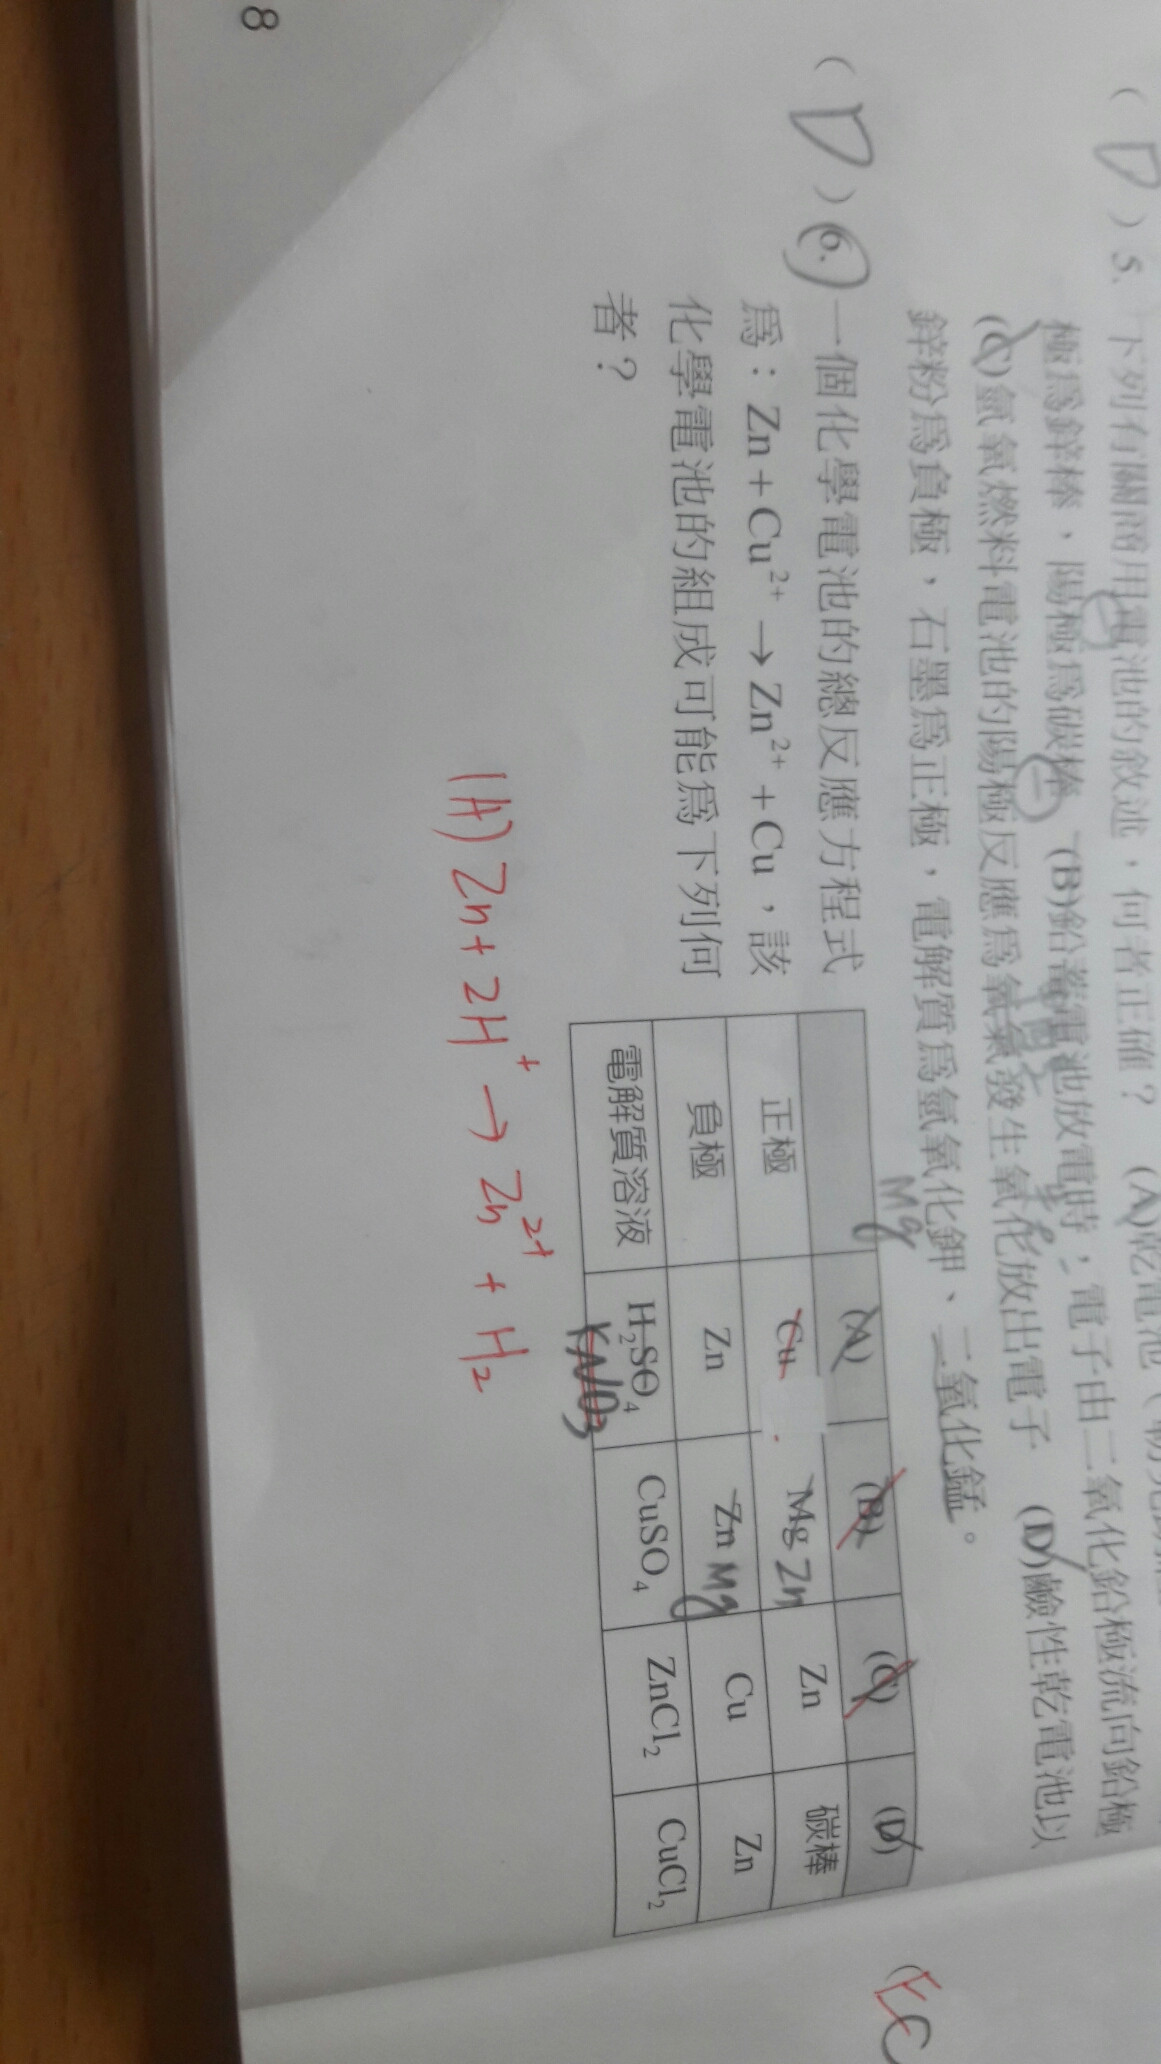 ( D ) 5. 下列有關常用電池的敘述，何者正確？ (A)乾電池
極為鋅棒，陽極為碳棒 (B)鉛蓄電池放電時，電子由二氧化鉛極流向鉛極
(C)氫氧燃料電池的陽極反應為氧氣發生氧化放出電子 (D)鹼性乾電池以
鋅粉為負極，石墨為正極，電解質為氫氧化鉀、二氧化錳。
( D ) 6. 一個化學電池的總反應方程式
為：Zn + Cu²⁺ → Zn²⁺ + Cu，該
化學電池的組成可能為下列何
者？
Mg
(A) (B) (C) (D)
正極 Cu Mg Zn Zn 碳棒
負極 Zn Zn Mg Cu Zn
電解質溶液 H₂SO₄ CuSO₄ ZnCl₂ CuCl₂
KNO₃
(A) Zn + 2H⁺ → Zn²⁺ + H₂
8